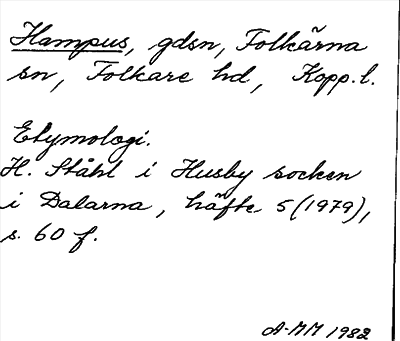 Hampus, gdsn, Folkärna
sn, Folkare hd, Kopp. l.
Etymologi.
H. Ståhl i Husby socken
i Dalarna, häfte 5 (1979),
s. 60 f.
A-MM 1982